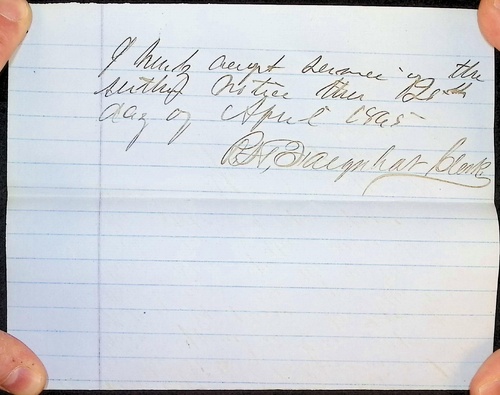 I hereby accept service of the
within Notice this 12th
day of April 1865
Farquhar Clerk